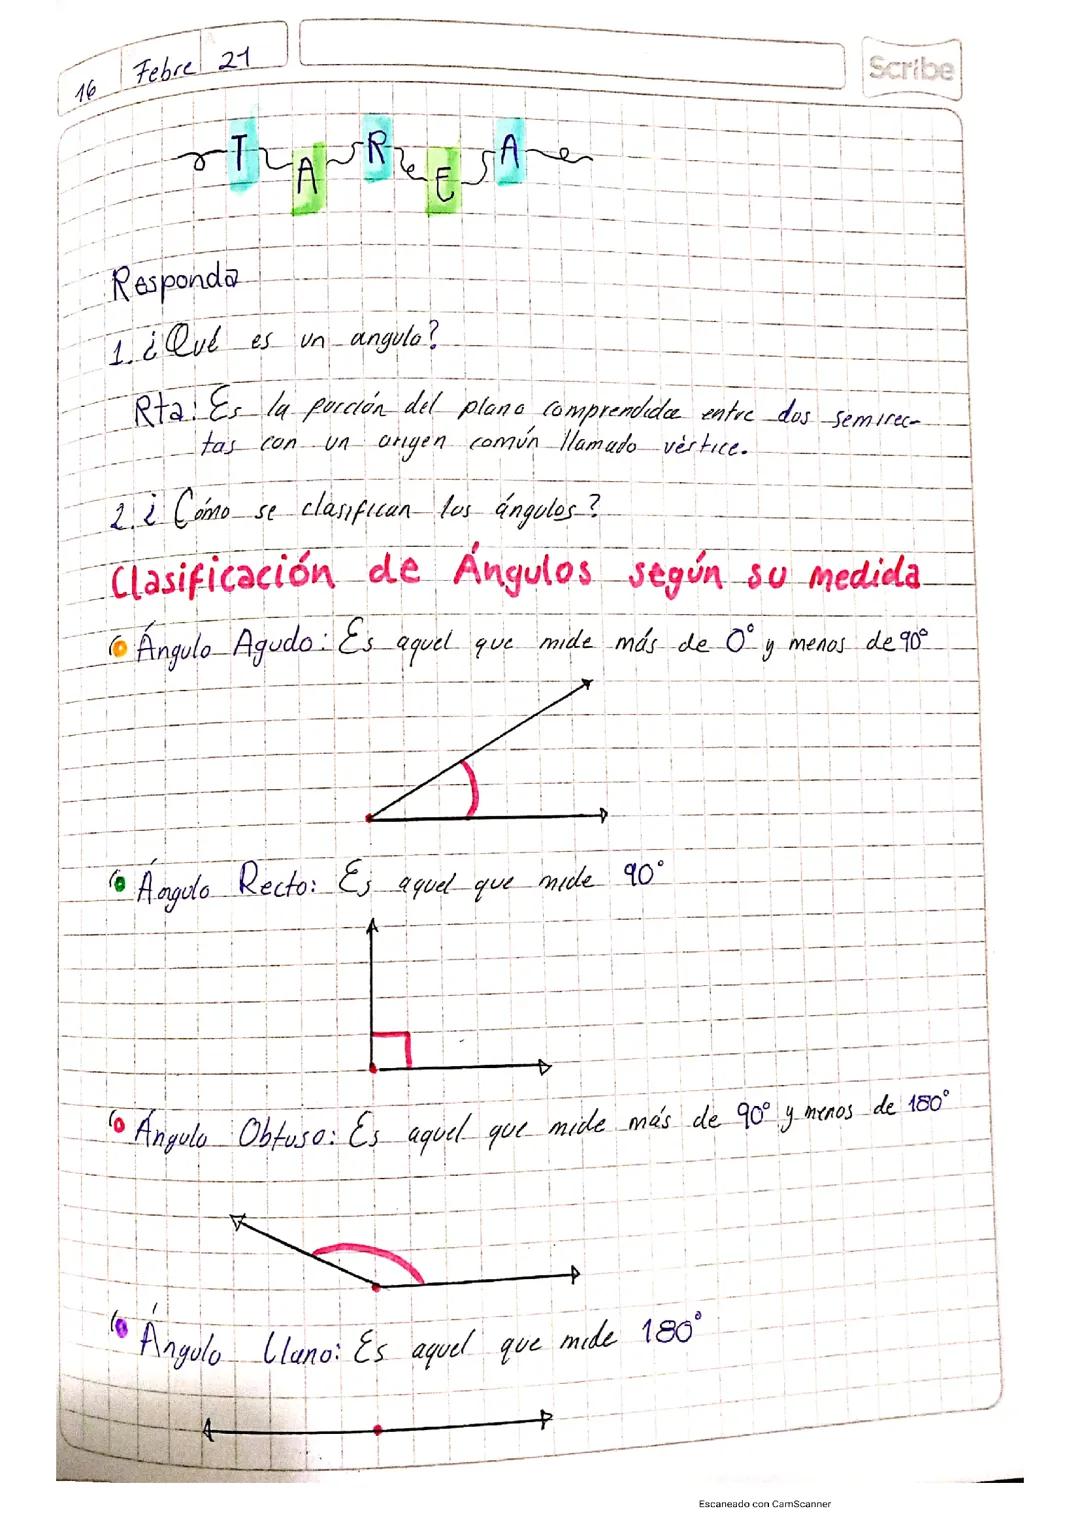 16 Febre 21
Scribe
TAREA
Responda
1. ¿Qué es un angulo?
Rta: Es la porción del plano comprendida entre dos semirec-
tas con un origen común llamado vértice.
2. ¿Cómo se clasifican los ángulos?
Clasificación de Ángulos según su medida
Ángulo Agudo: Es aquel que mide más de 0° y menos de 90°
Ángulo Recto: Es aquel que mide 90°
Ángulo Obtuso: Es aquel que mide más de 90° y menos de 180°
Ángulo Llano: Es aquel que mide 180°
Escaneado con CamScanner